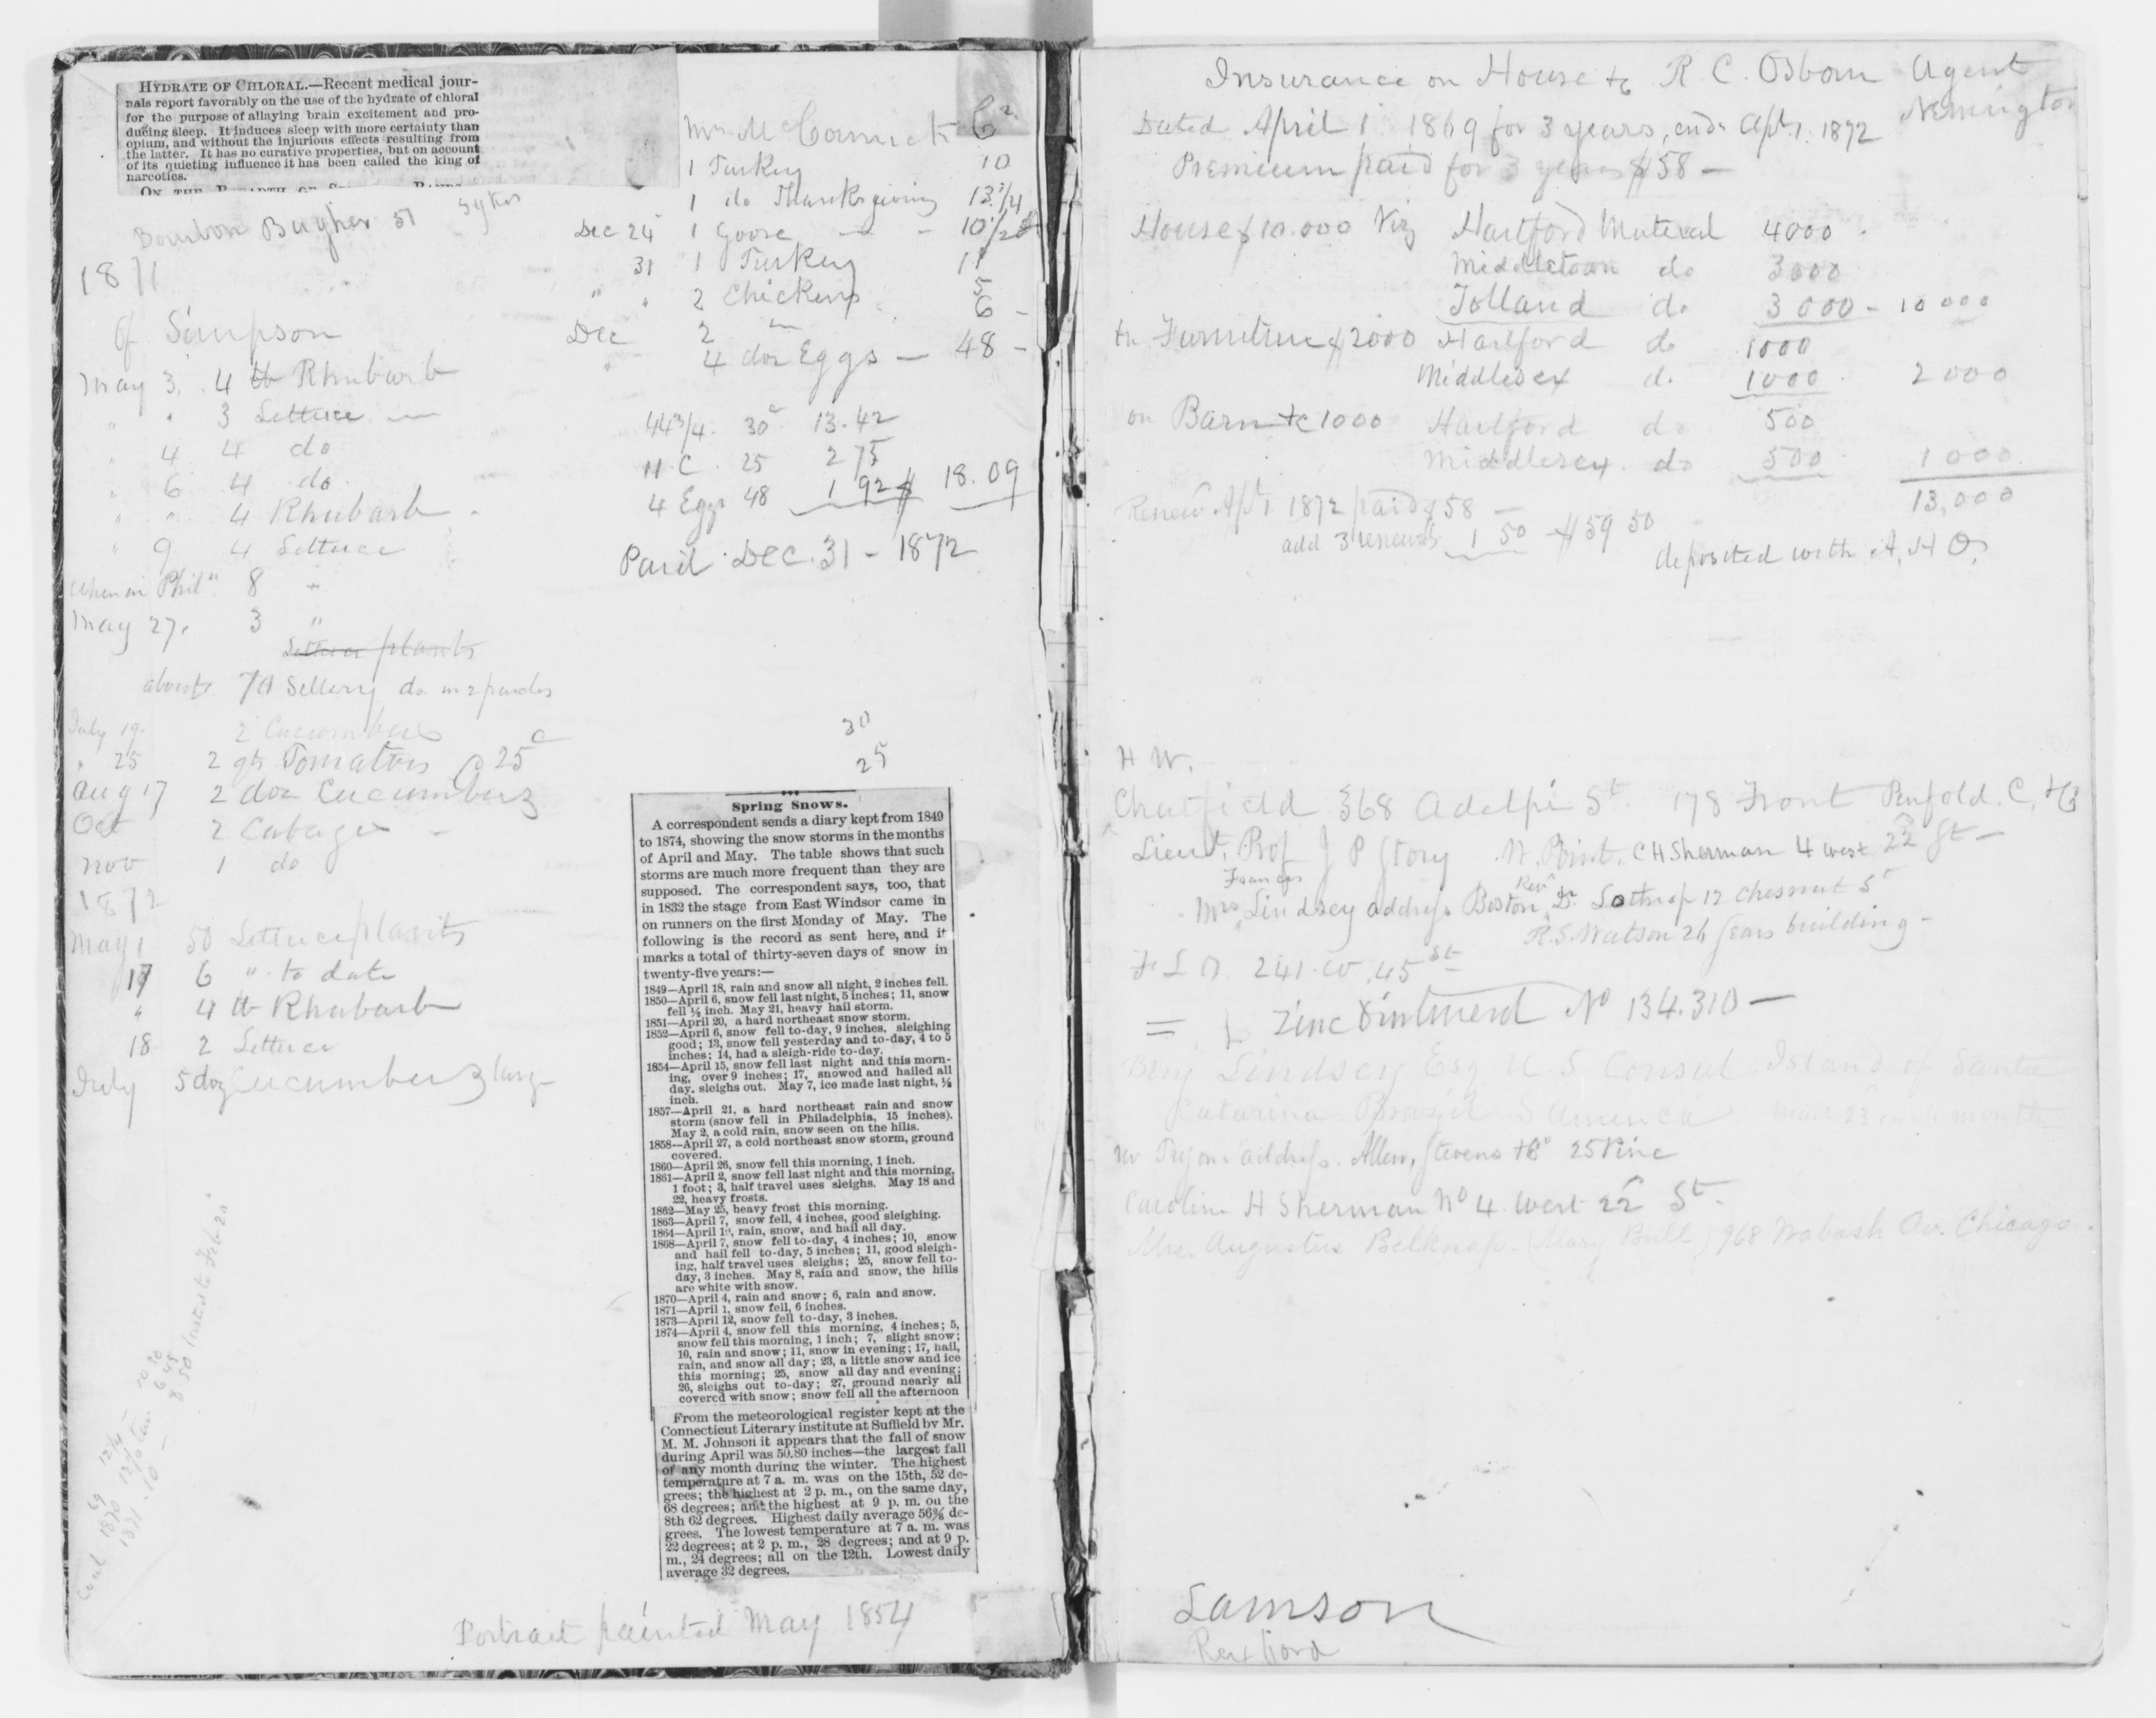 HYDRATE OF CHLORAL.—Recent medical jour-
nals report favorably on the use of the hydrate of chloral
for the purpose of allaying brain excitement and pro-
ducing sleep. It induces sleep with more certainty than
opium, and without the injurious effects resulting from
the latter. It has no curative properties, but on account
of its quieting influence it has been called the king of
narcotics.
Bourbon Bugher 51 Sykes
1871
of Simpson
May 3. 4 lb Rhubarb
" " 3 Lettuce —
" 4 4 do
" 6 4 do
" " 4 Rhubarb
" 9 4 Lettuce
When in Phila 8 "
May 27. 3 "
Lettuce plants
about 70 Sellery do. in 2 parcles
July 19. 2 Cucumbers
" 25 2 qts Tomatoes @ 25c
Aug 17 2 doz Cucumbers
Oct 2 Cabages -
Nov 1 do
1872
May 1 50 Lettuce plants
17 6 " to date
" 4 lb Rhubarb
18 2 Lettuce
July 5 doz Cucumbers large
Coal 69 12 1/4
1870
1871 . 10 —
8 50
Mrs McCormick Cr
1 Turkey 10
1 do Thanksgiving 13 3/4
Dec 24 1 Goose — - 10 1/2
31 1 Turkey 11
" " 2 Chickens 5
Dec 2 " 6 -
" 4 doz Eggs — 48 -
44 3/4 30c 13.42
11 C. 25 2 75
4 Eggs 48 1 92 $ 18.09
Paid Dec. 31 - 1872
30
25
Spring Snows.
A correspondent sends a diary kept from 1849
to 1874, showing the snow storms in the months
of April and May. The table shows that such
storms are much more frequent than they are
supposed. The correspondent says, too, that
in 1832 the stage from East Windsor came in
on runners on the first Monday of May. The
following is the record as sent here, and it
marks a total of thirty-seven days of snow in
twenty-five years:—
1849—April 18, rain and snow all night, 2 inches fell.
1850—April 6, snow fell last night, 5 inches; 11, snow
fell ½ inch. May 21, heavy hail storm.
1851—April 20, a hard northeast snow storm.
1852—April 6, snow fell to-day, 9 inches, sleighing
good; 13, snow fell yesterday and to-day, 4 to 5
inches; 14, had a sleigh-ride to-day.
1854—April 15, snow fell last night and this morn-
ing, over 9 inches; 17, snowed and hailed all
day, sleighs out. May 7, ice made last night, ½
inch.
1857—April 21, a hard northeast rain and snow
storm (snow fell in Philadelphia, 15 inches).
May 2, a cold rain, snow seen on the hills.
1858—April 27, a cold northeast snow storm, ground
covered.
1860—April 26, snow fell this morning, 1 inch.
1861—April 2, snow fell last night and this morning,
1 foot; 3, half travel uses sleighs. May 18 and
22, heavy frosts.
1862—May 25, heavy frost this morning.
1863—April 7, snow fell, 4 inches, good sleighing.
1864—April 10, rain, snow, and hail all day.
1868—April 7, snow fell to-day, 4 inches; 10, snow
and hail fell to-day, 5 inches; 11, good sleigh-
ing, half travel uses sleighs; 25, snow fell to-
day, 3 inches. May 8, rain and snow, the hills
are white with snow.
1870—April 4, rain and snow; 6, rain and snow.
1871—April 1, snow fell, 6 inches.
1873—April 12, snow fell to-day, 3 inches.
1874—April 4, snow fell this morning, 4 inches; 5,
snow fell this morning, 1 inch; 7, slight snow;
10, rain and snow; 11, snow in evening; 17, hail,
rain, and snow all day; 23, a little snow and ice
this morning; 25, snow all day and evening;
26, sleighs out to-day; 27, ground nearly all
covered with snow; snow fell all the afternoon
From the meteorological register kept at the
Connecticut Literary institute at Suffield by Mr.
M. M. Johnson it appears that the fall of snow
during April was 50.80 inches—the largest fall
of any month during the winter. The highest
temperature at 7 a. m. was on the 15th, 52 de-
grees; the highest at 2 p. m., on the same day,
68 degrees; and the highest at 9 p. m. on the
8th 62 degrees. Highest daily average 56⅔ de-
grees. The lowest temperature at 7 a. m. was
22 degrees; at 2 p. m., 28 degrees; and at 9 p.
m., 24 degrees; all on the 12th. Lowest daily
average 32 degrees.
Portrait painted May 1854
Insurance on House &c R. C. Osborn Agent
Newington
Dated April 1. 1869 for 3 years, ends Apl. 1. 1872
Premium paid for 3 years $58 —
House $10.000 Viz Hartford Mutual 4000
Middletown do 3000
Tolland do 3000 - 10000
on Furniture $2000 Hartford do 1000
Middlesex do 1000 2000
on Barn &c 1000 Hartford do 500
Middlesex do 500 1000
13,000
Renewd Apl 1. 1872 paid $58 —
add 3 renewals 1 50 - $59 50
deposited with A. H O.
H W.
Chatfield 368 Adelpi St 178 Front Penfold. C. & Co
Lieut. Prof J P Story W. Point. C H Sherman 4 West 22d St —
Mrs Frances Lindsey address Boston, Revd Dr Lothrop 12 Chesnut St
R. S. Watson 26 Sears building -
F L D. 241 W. 45 St
= Zinc Ointment No 134.310 —
Benj Lindsey Esq U S Consul Island of Santa
Katarina Brazil S America Mail 23 each month
Wm Tryon address. Allen, Stevens & Co 25 Pine
Caroline H Sherman No 4 West 22d St.
Mrs. Augustus Belknap. (Mary Bull) 968 Wabash Av. Chicago.
Lamson
Rexford